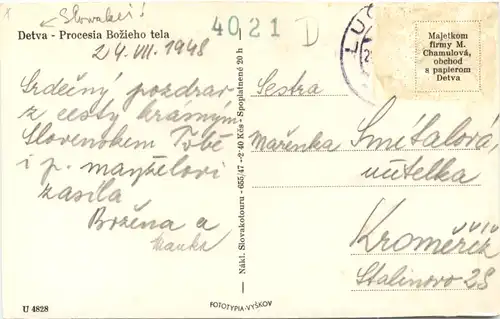 Slovakei!
Detva - Procesia Božieho tela
24.VII.1948
4021 D
LUČ
Majetkom
firmy M.
Chamulová,
obchod
s papierom
Detva
Srdečný pozdrav
z cesty krásným
Slovenskem Tobě
i p. manželovi
zasílá
Božena a
Nákl. Slovakotouru - 655/47 - 2·40 Kčs - Spoplatnené 20 h
Sestra
Mařenka Smítalová,
učitelka
Kroměříž
Stalinovo 28
U 4828
FOTOTYPIA-VYŠKOV